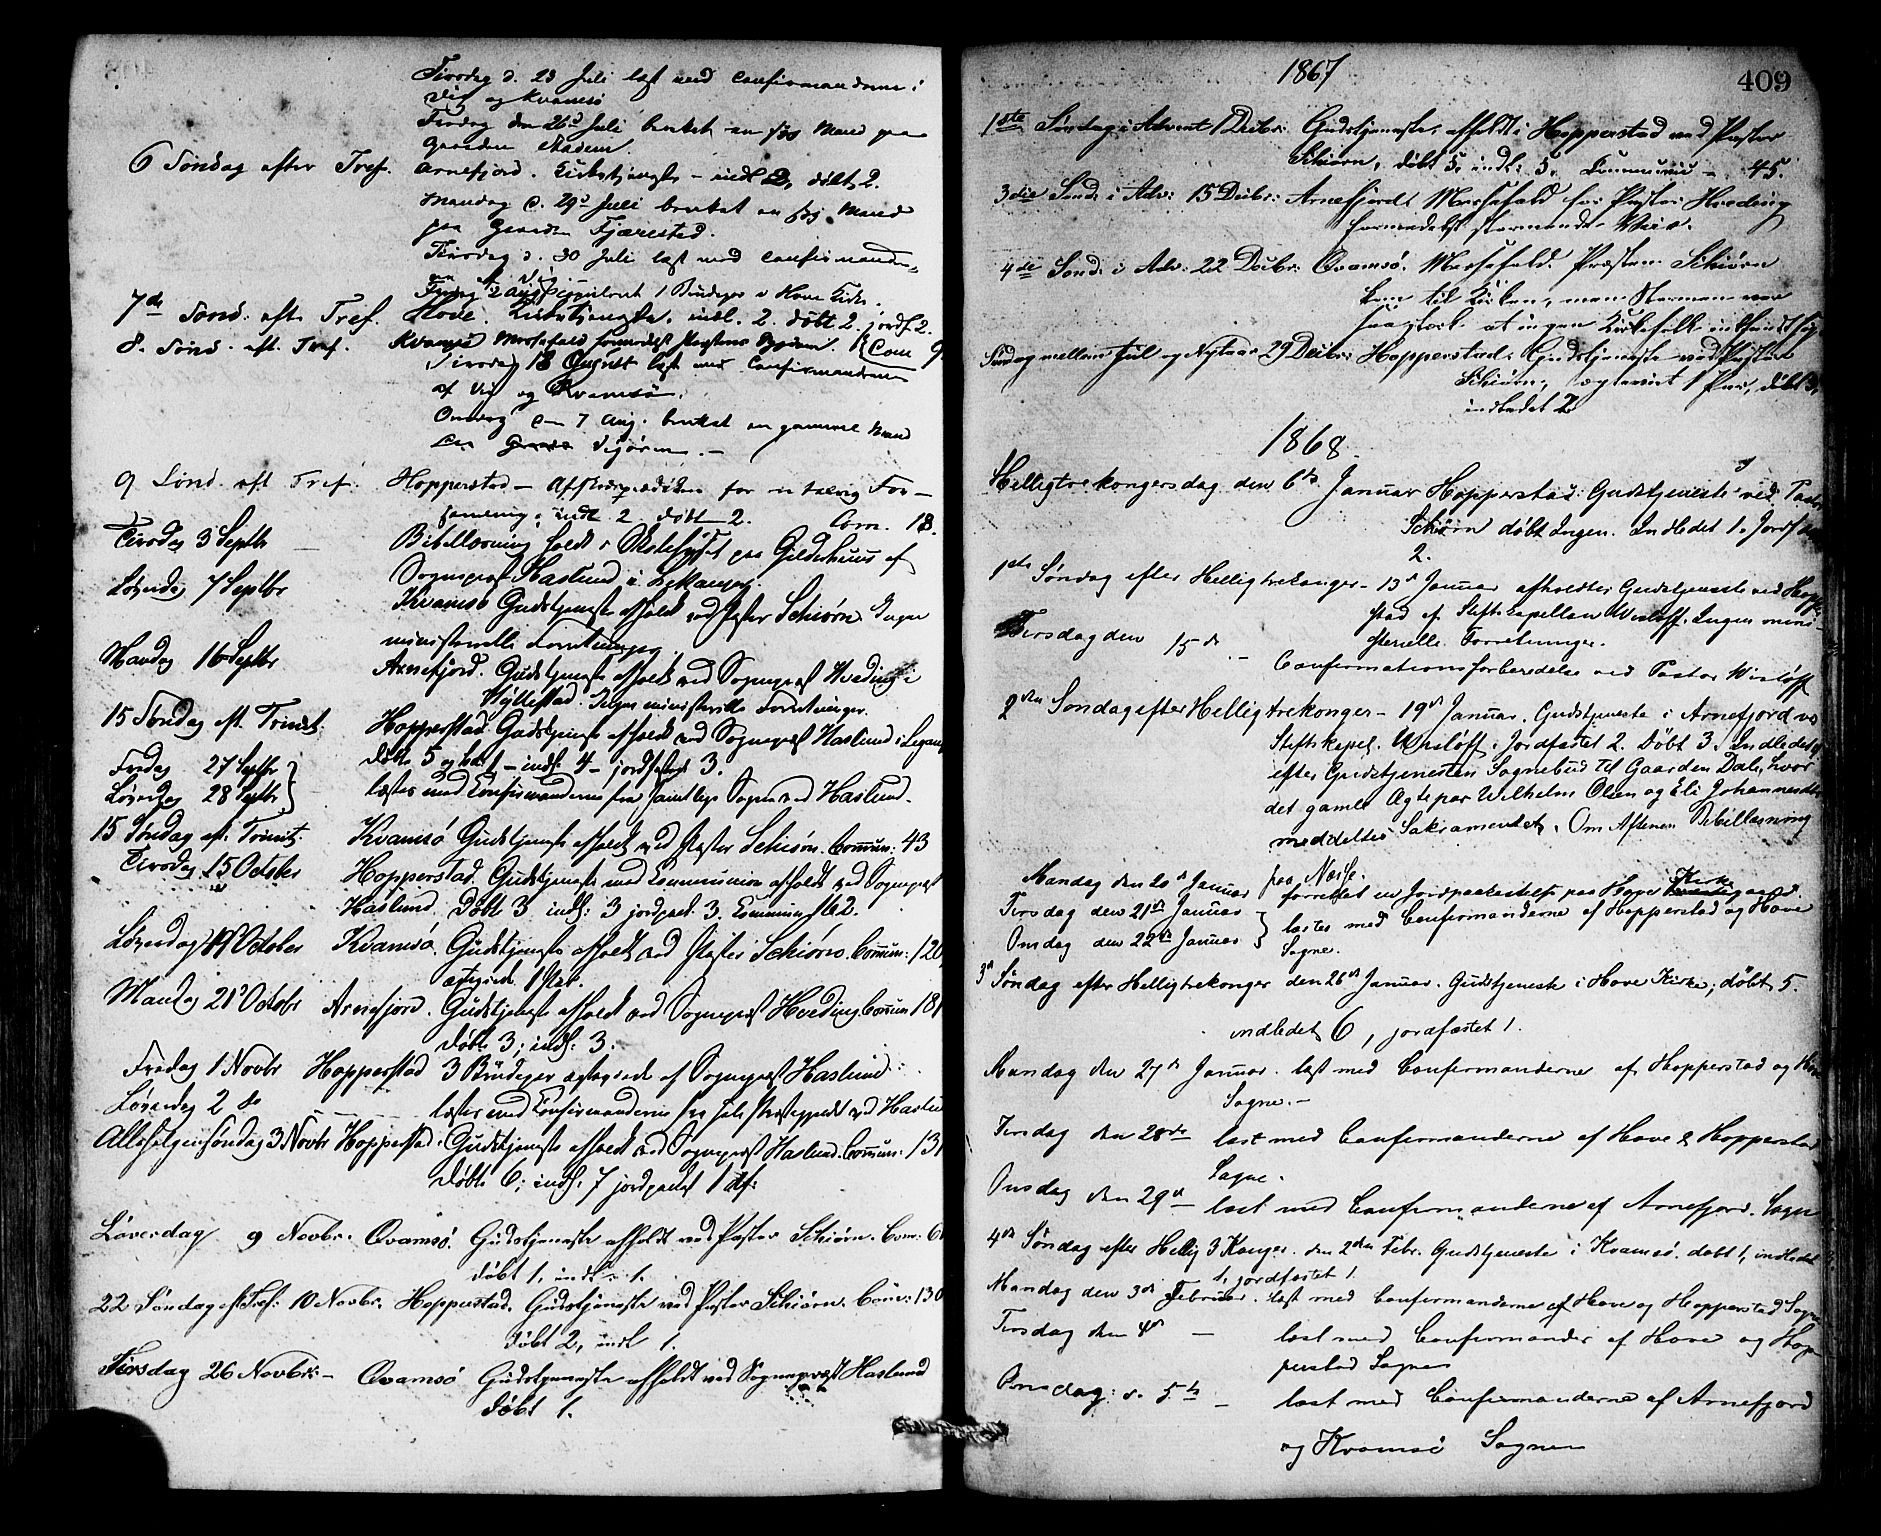 Tirsdag d. 23 Juli læst med Confirmanderne i
Vig og Kvamsø
Fredag den 26d Juli berettet en syg Mand paa
Gaarden
6 Søndag efter Tref. Arnefjord. Kirketjeneste - indl. 2, døbt 2.
Mandag d. 29d Juli berettet en syg Mand
paa Gaarden Fjærestad.
Tirsdag d. 30 Juli læst med Confirmander
af Vig
Fredag 2 Aug. copuleret 1 Brudepar i Hove Kirke.
7de Sønd. eft. Tref. Hove. Kirketjeneste. indl. 2. døbt 2. jordf. 2.
8. Sønd. eft. Tref. Kvamsø Messefald formedelst Præstens Sygdom. Com 9
Tirsdag 13 August læst med Confirmanderne
af Vig og Kvamsø.
Onsdag den 7 Aug. berettet en gammel Mand
paa
9 Sønd. eft. Tref. Hopperstad - Afskedsprædiken for en talrig For-
samling, indl. 2 døbt 2. Com. 18.
Tirsdag 3 Septbr Bibellæsning holdt i Skolehuset paa Gildrehuus af
Sognepræst Haslund i Lekanger.
Løverdag 7 Septbr Kvamsø Gudstjeneste afholdt ved Pastor Schiørn Ingen
ministerielle Forretninger.
Mandag 16 Septbr Arnefjord. Gudstjeneste afholdt ved Sognepræst Hveding i
Hyllestad. Ingen ministerielle Forretninger.
15 Søndag eft. Trinit. Hopperstad. Gudstjeneste afholdt ved Sognepræst Haslund i Legang
døbte 5 - indl. 4 - jordfæstet 3.
Fredag 27 Septbr
Løverdag 28 Septbr læstes med Confirmanderne fra samtlige Sogne ved Haslund.
15 Søndag eft. Trinit. Kvamsø Gudstjeneste afholdt ved Pastor Schiörn. Commun: 43
Tirsdag 15 October Hopperstad. Gudstjeneste med Communion afholdt ved Sognepræst
Haslund. Døbt 3 indl: 3 jordfæst. 3. Communic. 62.
Løverdag 19 October Kvamsö. Gudstjeneste afholdt ved Pastor Schiörn. Commun: 120,
ægteviet 1 Par.
Mandag 21d Octobr Arnefjord. Gudstjeneste afholdt ved Sognepræst Hveding. Commun 181
døbte 3; indl: 3.
Fredag 1 Novbr Hopperstad 3 Brudepar ægteviede af Sognepræst Haslund.
Løverdag 2 do læstes med Confirmanderne fra hele Præstegjeldet ved Haslu
Allehelgensøndag 3 Novbr Hopperstad: Gudstjeneste afholdt ved Sognepræst Haslund. Commun: 131
døbte 6; indl. 7 jordfæstet 1
Løverdag 9 Novbr. Qvamsö. Gudstjeneste afholdt ved Pastor Schiörn. Com: 6
døbt 1, indl: 1.
22 Söndag ef. Tref: 10 Novbr. Hopperstad. Gudstjeneste ved Pastor Schiörn. Com: 130
døbt 2, indl 1.
Tirsdag 26 Novbr:- Qvamsö Gudstjeneste afholdt ved Sognepræst Haslund
døbt 1.
1867 409
1ste Søndag i Advent 1 Decbr: Gudstjeneste afholdt i Hopperstad ved Pastor
Schiørn, døbt 5, indl: 5, Communic - 45.
3die Sönd: i Adv: 15 Decbr: Arnefjord: Messefald for Pastor Hveding
formedelst stormende Veir.
4de Sönd: i Adv: 22 Decbr: Qvamsö. Messefald. Præsten Schiörn
kom til Kirken, men Stormen var
saa sterk at ingen Kirkefolk indfandt sig.
Söndag mellem Jul og Nytaar 29 Decbr: Hopperstad: Gudstjeneste ved Pastor
Schiörn, ægteviet 1 Par, döbt 3,
indledet 2.
1868.
Helligtrekongersdag den 6te Januar Hopperstad Gudstjeneste ved Pastor
Schiørn döbt Ingen. Indledet 1. Jordf
2.
1ste Søndag efter Helligtrekonger - 13de Januar afholdtes Gudstjeneste ved Hopp
stad af Stiftskapellan Wisløff. Ingen mini
sterielle Forretninger.
Tirsdag den 15de - Confirmationsforberedelse ved Pastor Wisløff
2den Søndag efter Helligtrekonger - 19de Januar. Gudstjeneste i Arnefjord ve
Stiftskapel. Wisløff. Jordfæstet 2. Döbt 3. Indledet
efter Gudstjenesten Sognebud til Gaarden Dale, hvor
det gamle Ægtepar Wilhelm Olsen og Eli Johannesdtr
meddeltes Sakramentet. Om Aftenen Bibellæsning
paa Næse.
Mandag den 20de Januar forrettet en Jordpaakastelse paa Hove Kirkegaard.
Tirsdag den 21de Januar
Onsdag den 22de Januar læstes med Confirmanderne af Hopperstad og Hove
Sogne.
3de Søndag efter Helligtrekonger den 26de Januar. Gudstjeneste i Hove Kirke; døbt 5.
indledet 6, jordfæstet 1.
Mandag den 27de Januar. læst med Confirmanderne af Hopperstad og Hove
Sogne.-
Tirsdag den 28de læst med Confirmanderne af Hove & Hopperstad
Sogne.
Onsdag den 29de læst med Confirmanderne af Arnefjord. Sogn
4de Søndag efter Hellig 3 Konger. den 2den Febr. Gudstjeneste i Kvamsö. døbt 1, indledet
1, jordfæstet 1.
Mandag den 3de Februar. læst med Confirmanderne af Hove og Hopperstad Sogne
Tirsdag den 4de - læst med Confirmander af Hove og Hop
perstad Sogne
Onsdag: d. 5te - læst med Confirmanderne af Arnefjord
og Kvamsö Sogne